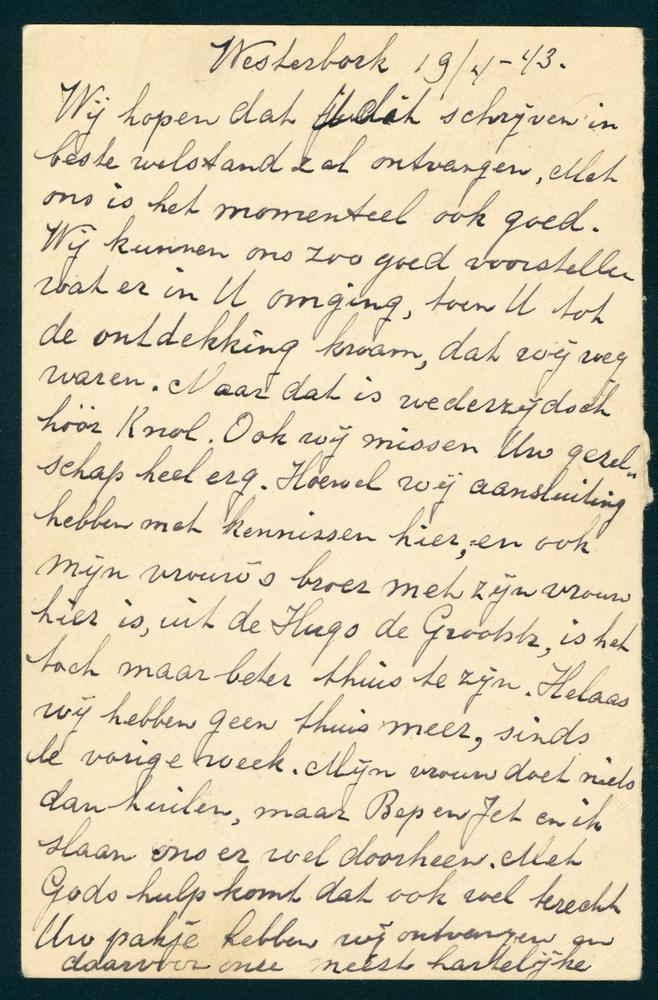 Westerbork 19/4-43.
Wij hopen dat U dit schrijven in
beste welstand zal ontvangen, Met
ons is het momenteel ook goed.
Wij kunnen ons zoo goed voorstellen
wat er in U omging, toen U tot
de ontdekking kwam, dat wij weg
waren. Maar dat is wederzijdsch
höör Knol. Ook wij missen Uw gezel„
schap heel erg. Hoewel wij aansluiting
hebben met kennissen hier, en ook
mijn vrouw's broer met zijn vrouw
hier is, uit de Hugo de Grootstr, is het
toch maar beter thuis te zijn. Helaas
wij hebben geen thuis meer, sinds
de vorige week. Mijn vrouw doet niets
dan huilen, maar Bep en Jet en ik
slaan ons er wel doorheen. Met
Gods hulp komt dat ook wel terecht
Uw pakje hebben wij ontvangen en
daarvoor onze meest hartelijke